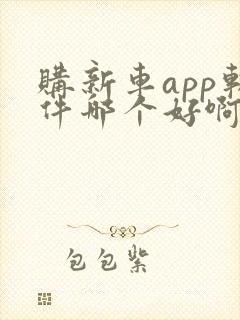 購新車app軟
件哪个好啊
包包紫